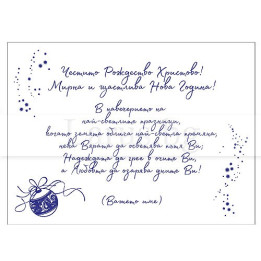 Честито Рождество Христово!
Мирна и щастлива Нова Година!
В навечерието на
най-светлите празници,
когато земята облича най-светла премяна,
нека Вярата да осветява пътя Ви;
Надеждата да грее в очите Ви;
а Любовта да озарява дните Ви!
(Вашето име)